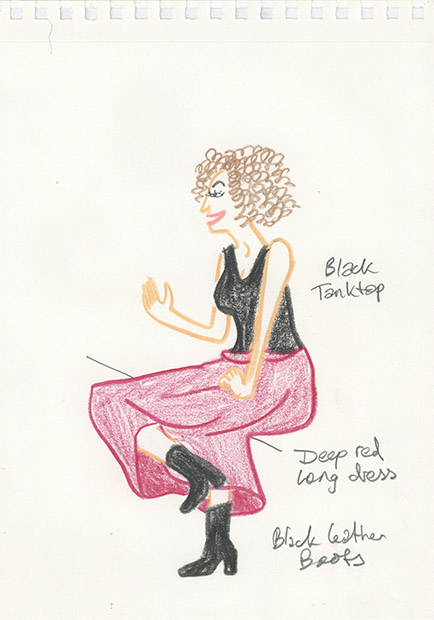 Black
Tanktop
Deep red
Long dress
Black leather
Boots